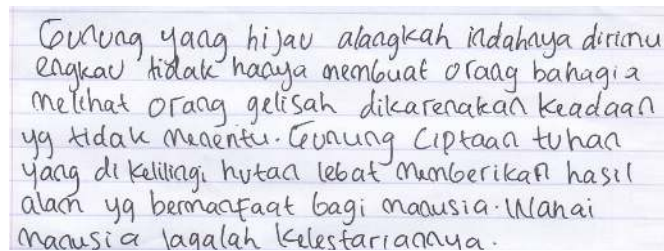 Gunung yang hijau alangkah indahnya dirimu
engkau tidak hanya membuat orang bahagia
melihat orang gelisah dikarenakan keadaan
yg tidak menentu. Gunung ciptaan tuhan
yang di kelilingi hutan lebat memberikan hasil
alam yg bermanfaat bagi manusia. Wahai
manusia jagalah kelestariannya.